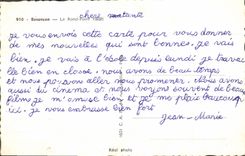 910 - Besançon - Le Rond
chère
je vous envois cette carte pour vous donner
de mes nouvelles qui sont bonnes. je vais
bien. je vais à l'école depuis lundi je travai
lle bien en classe. nous avons de beau temps
et nous pouvons aller nous promener. Nous avons
aussi du cinéma et nous voyons souvent de beau
films je m'amuse bien et je me plais beaucoup
ici. je vous embrasse bien fort
Jean-Marie
Réel photo